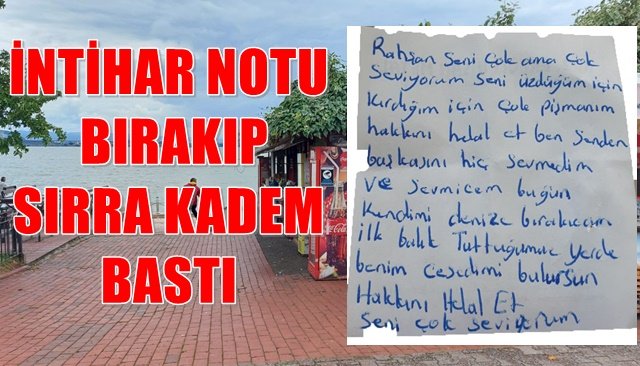 İNTİHAR NOTU
BIRAKIP
SIRRA KADEM
BASTI
Rahşan seni çok ama çok
seviyorum seni üzdüğüm için
kırdığım için çok pişmanım
hakkını helal et ben senden
başkasını hiç sevmedim
ve sevmicem bugün
kendimi denize bırakıcam
ilk balık tuttuğumuz yerde
benim cesedimi bulursun
Hakkını Helal Et
seni çok seviyorum
Coca-Cola